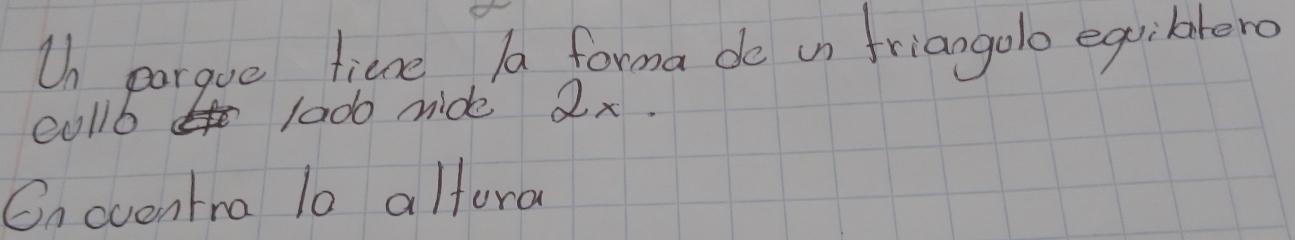 Un parque tiene la forma de un triangulo equilatero
cullo lado mide 2x.
Encuentra la altura